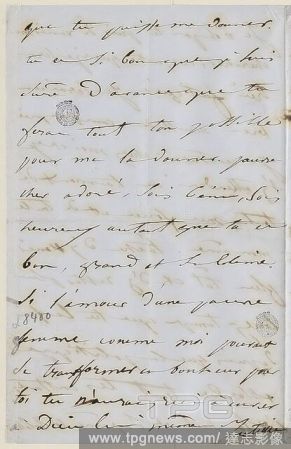 que tu puisses me donner.
tu es si bon que je suis
sûre d'avance que tu
feras tout ton possible
pour me la donner. pauvre
cher adoré, sois béni, sois
heureux autant que tu es
bon, grand et sublime.
Si l'amour d'une pauvre
femme comme moi pouvait
se transformer en bonheur pour
toi tu n'aurais rien à envier
à Dieu lui même.
28400
TPG
www.tpgnews.com / 達志影像